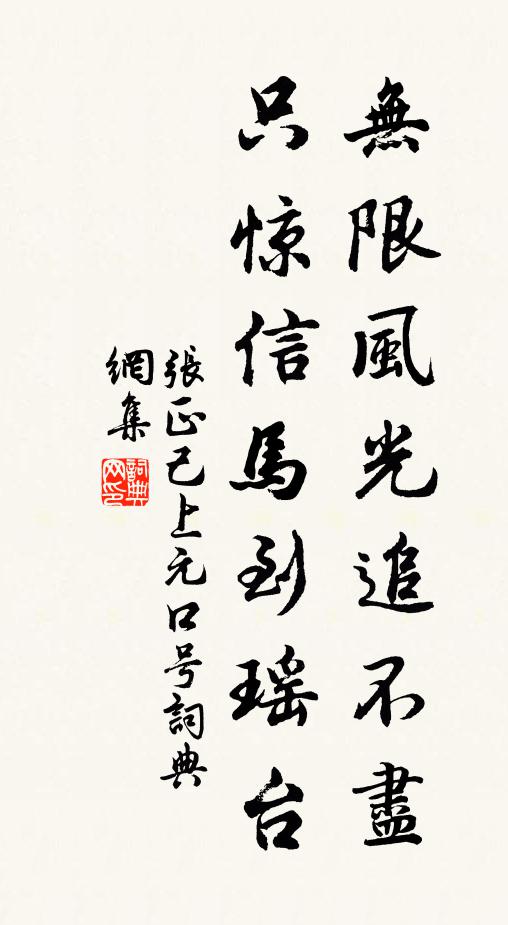 無限風光追不盡
只惊信馬到瑶台
張正己上元口号詞典
網集
詞典网印